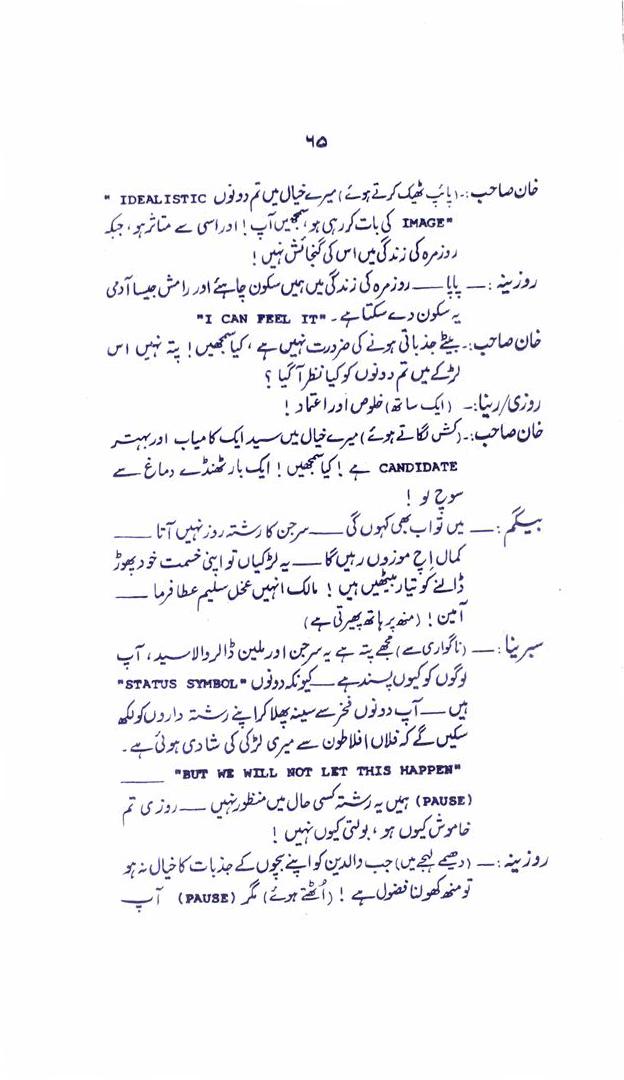 ۶۵
خان صاحب:۔ (پائپ ٹھیک کرتے ہوئے) میرے خیال میں تم دونوں "IDEALISTIC
IMAGE" کی بات کر رہی ہو، سمجھیں آپ! اور اسی سے متاثر ہو، جبکہ
روزمرہ کی زندگی میں اس کی گنجائش نہیں!
روزینہ:۔ پاپا ــــ روزمرہ کی زندگی میں ہمیں سکون چاہئے اور رامش جیسا آدمی
یہ سکون دے سکتا ہے۔ "I CAN FEEL IT"
خان صاحب:۔ بیٹے جذباتی ہونے کی ضرورت نہیں ہے، کیا سمجھیں! پتہ نہیں اس
لڑکے میں تم دونوں کو کیا نظر آ گیا؟
روزی/رینا:۔ (ایک ساتھ) خلوص اور اعتماد!
خان صاحب:۔ (کش لگاتے ہوئے) میرے خیال میں سید ایک کامیاب اور بہتر
CANDIDATE ہے! کیا سمجھیں! ایک بار ٹھنڈے دماغ سے
سوچ لو!
بیگم:۔ میں تو اب بھی کہوں گی ــــ سرجن کا رشتہ روز نہیں آتا ــــ
کمال اچ موزوں رہیں گا ــــ یہ لڑکیاں تو اپنی خسمت خود پھوڑ
ڈالنے کو تیار بیٹھیں ہیں! مالک انہیں عخل سلیم عطا فرما ــــ
آمین! (منھ پر ہاتھ پھیرتی ہے)
سبرینا:۔ (ناگواری سے) مجھے پتہ ہے یہ سرجن اور ملین ڈالر والا سید، آپ
لوگوں کو کیوں پسند ہے ــــ کیونکہ دونوں "STATUS SYMBOL"
ہیں ــــ آپ دونوں فخر سے سینہ پھلا کر اپنے رشتہ داروں کو لکھ
سکیں گے کہ فلاں افلاطون سے میری لڑکی کی شادی ہوئی ہے۔
"BUT WE WILL NOT LET THIS HAPPEN" ــــ
(PAUSE) ہمیں یہ رشتہ کسی حال میں منظور نہیں ــــ روزی تم
خاموش کیوں ہو، بولتی کیوں نہیں!
روزینہ:۔ (دھیمے لہجے میں) جب والدین کو اپنے بچوں کے جذبات کا خیال نہ ہو
تو منھ کھولنا فضول ہے! (اُٹھتے ہوئے) مگر (PAUSE) آپ